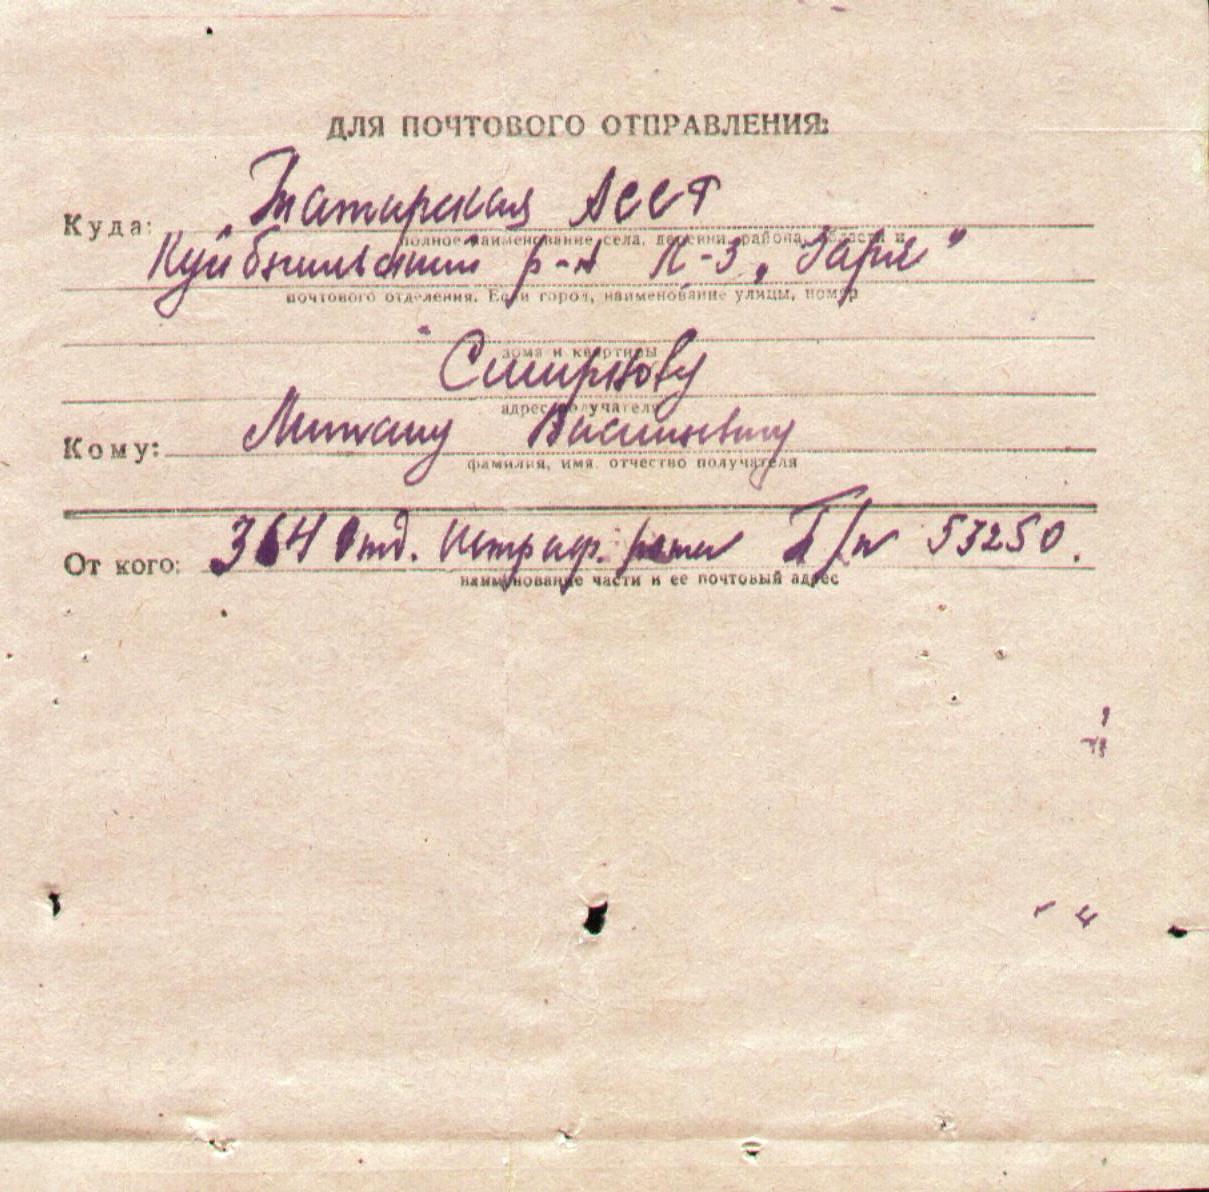 ДЛЯ ПОЧТОВОГО ОТПРАВЛЕНИЯ:
Куда: Татарская АССР
полное наименование села, деревни, района, области и
Куйбышевский р-н К-з „Заря"
почтового отделения. Если город, наименование улицы, номер
дома и квартиры
Смирнову
адрес получателя
Кому: Михаилу Васильевичу
фамилия, имя, отчество получателя
От кого: 364 Отд. роты П/п 53250.
наименование части и ее почтовый адрес